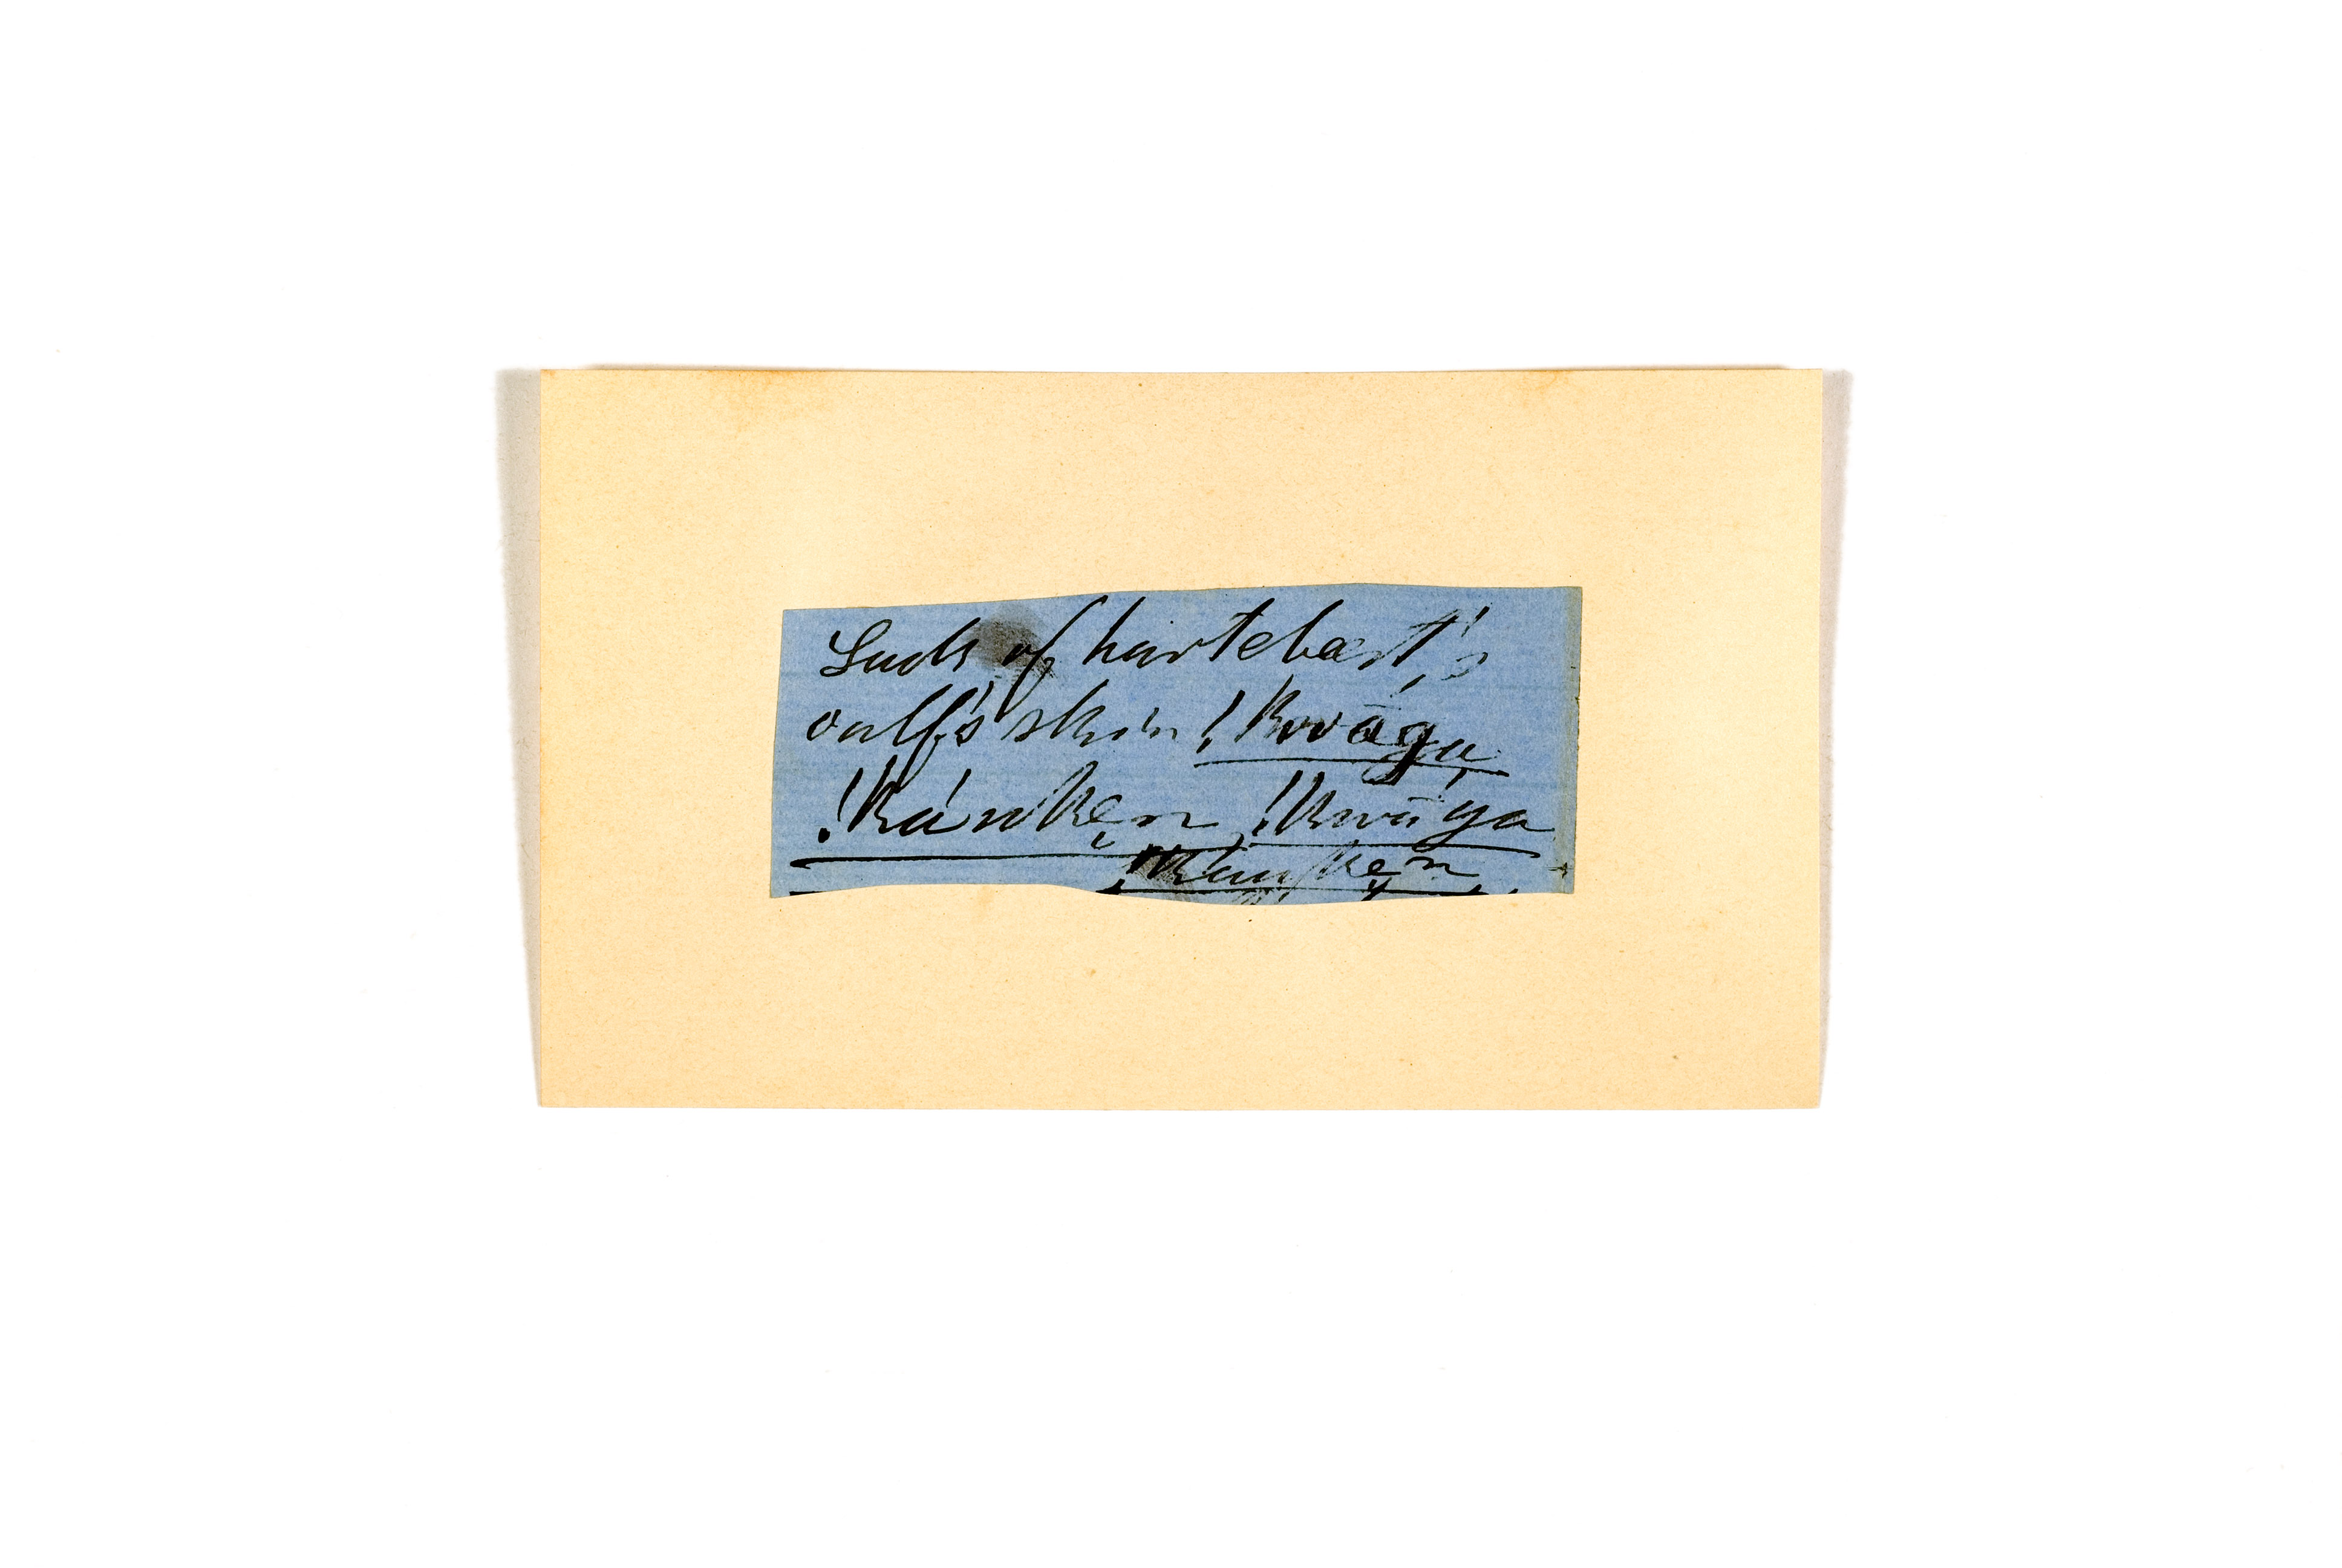 Sack of hartebeest's
calf's skin !kwāga
!káuken, !kwāga
!kauken